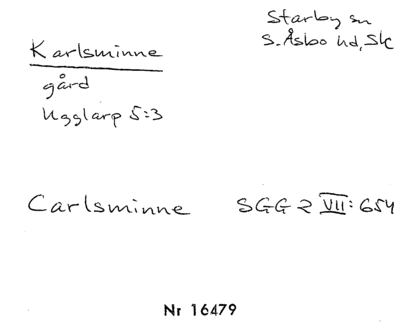 Starby sn
S. Åsbo hd, Sk
Karlsminne
gård
Ugglarp 5:3
Carlsminne SGG 2 VII: 654
Nr 16479